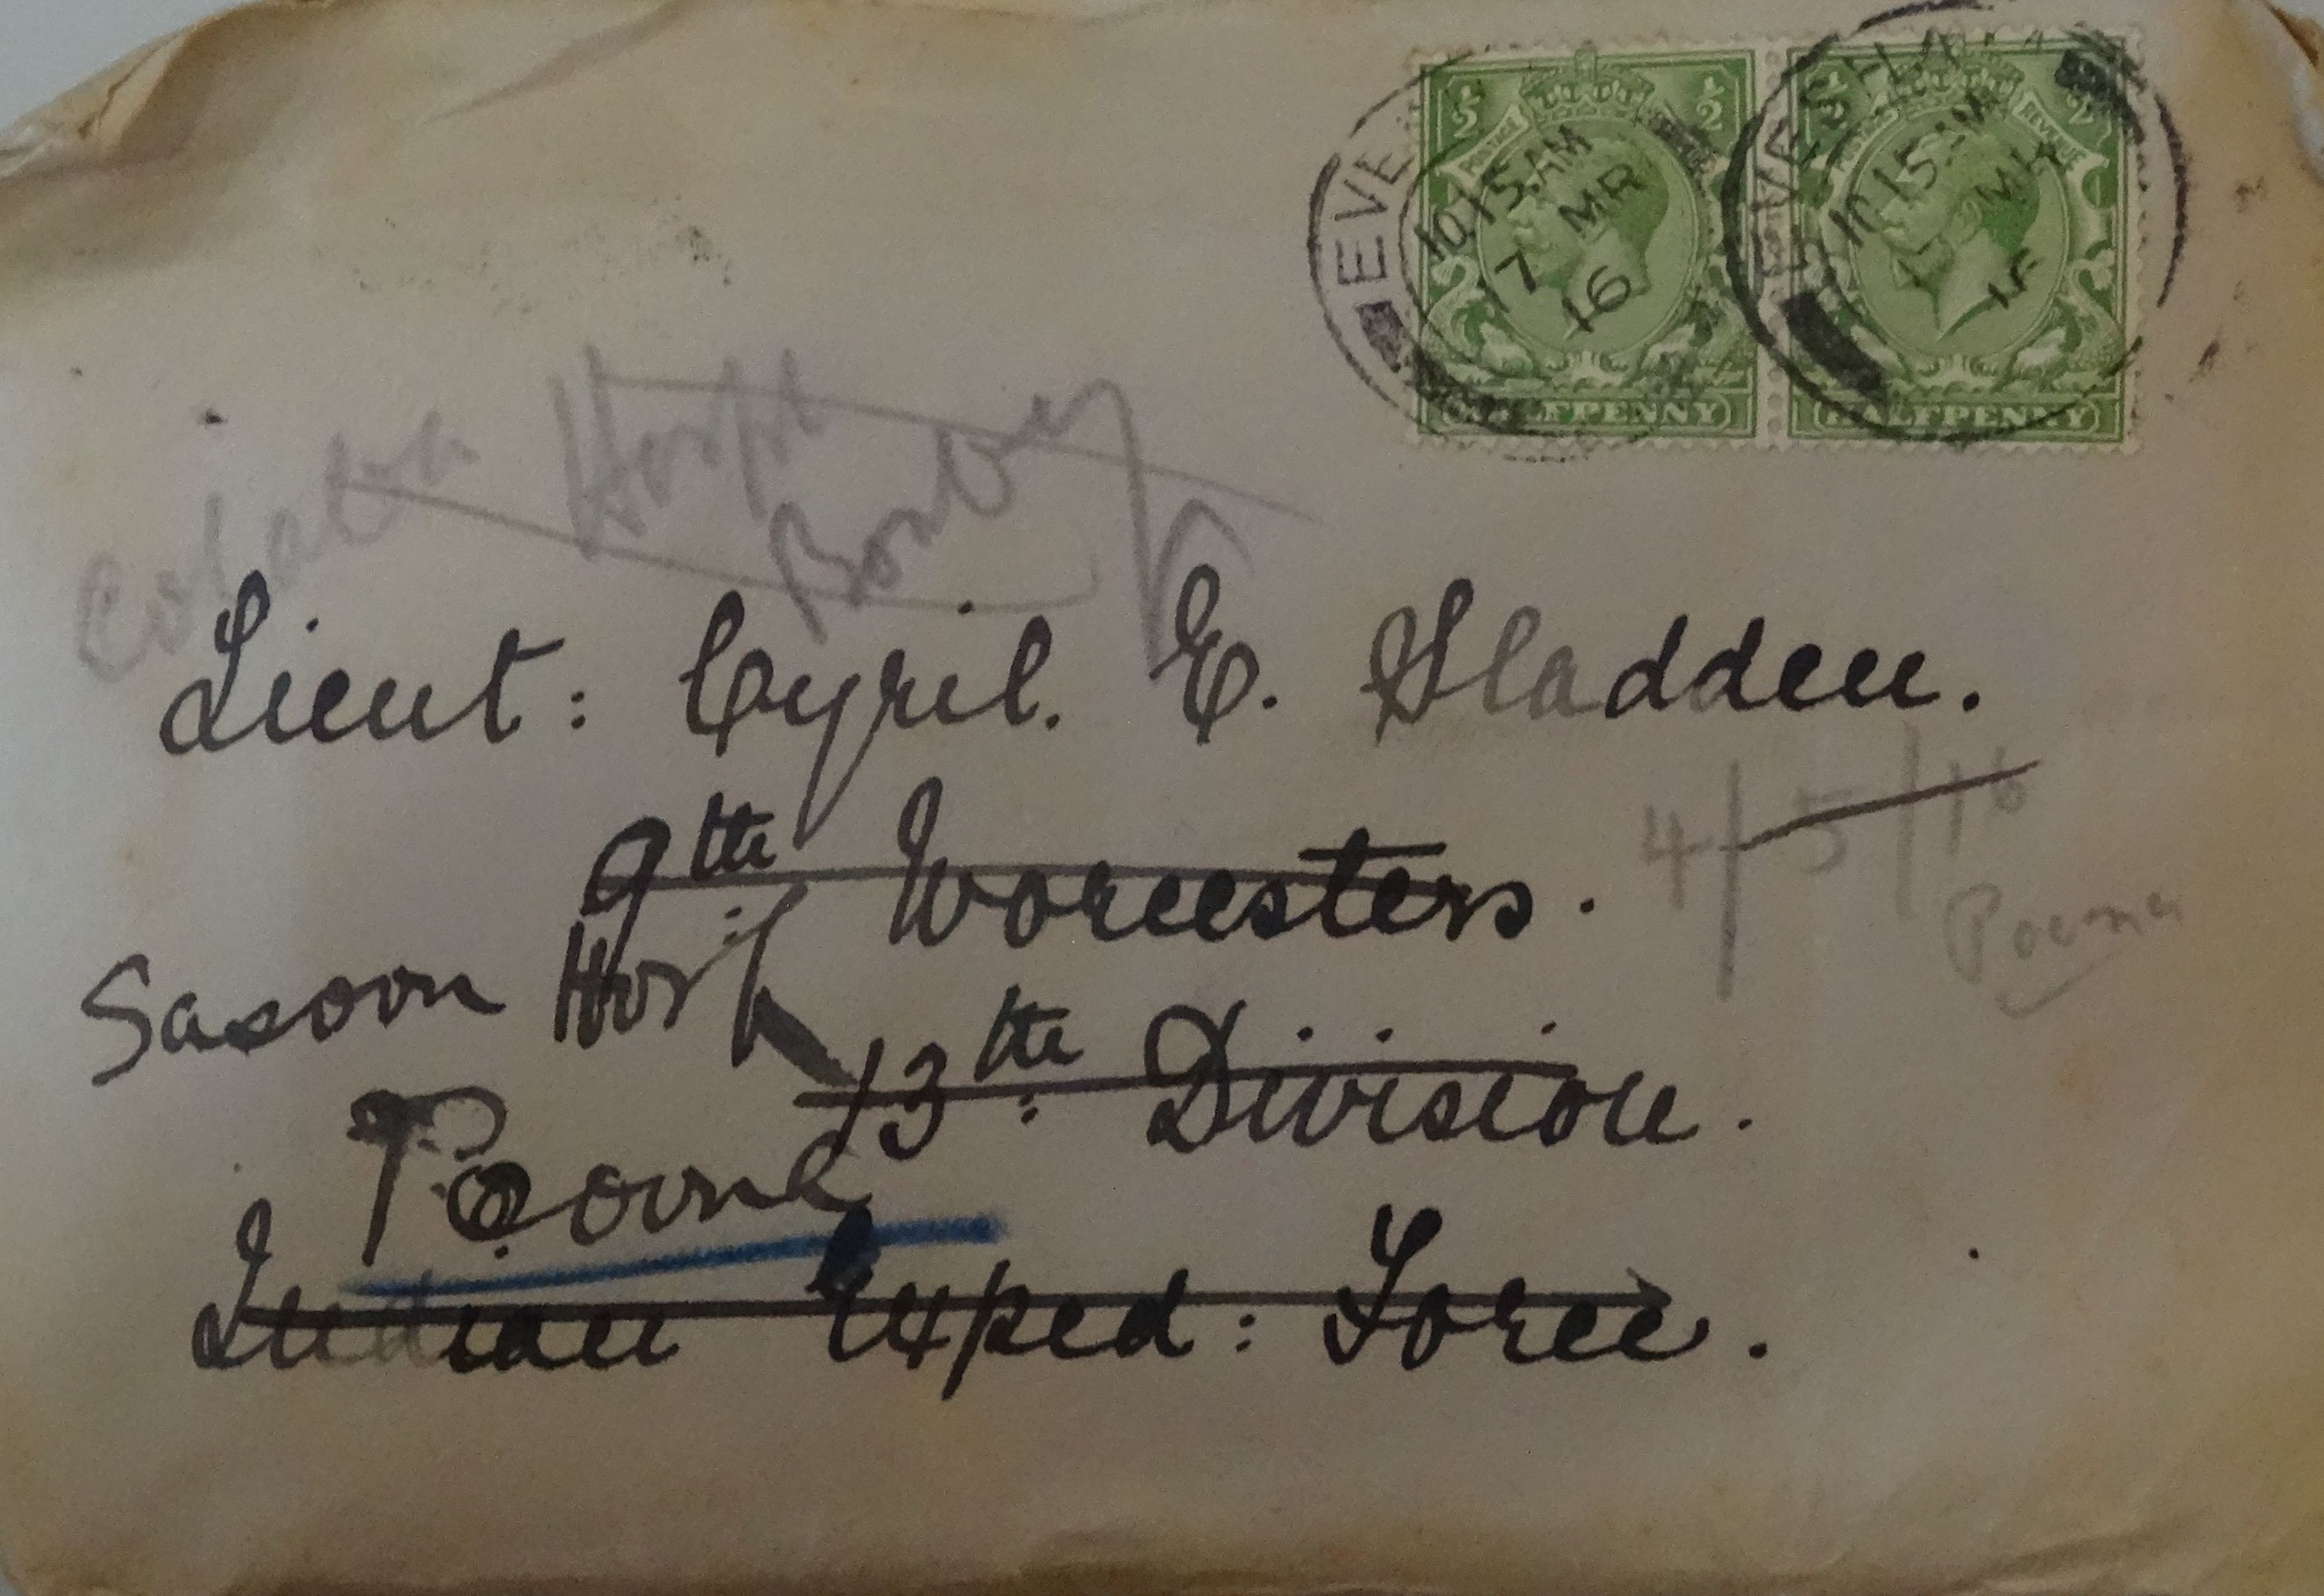 EVE
10.15.AM
17 MR
16
EVESHAM
10.15.AM
17 MR
16
½ ½
POSTAGE
HALFPENNY
½ ½
POSTAGE REVENUE
HALFPENNY
Colaba Hospl
Bombay
Lieut: Cyril. E. Sladden.
9th Worcesters.
4/5/16
Poona
Sasoon Hosp
13th Division.
Poona
Indian Exped: Force.